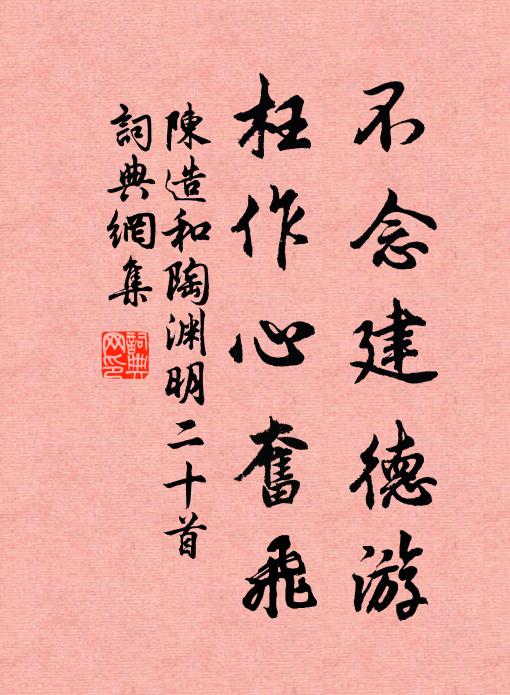 不念建德游
枉作心奮飛
陳造和陶渊明二十首
詞典網集
詞典网印